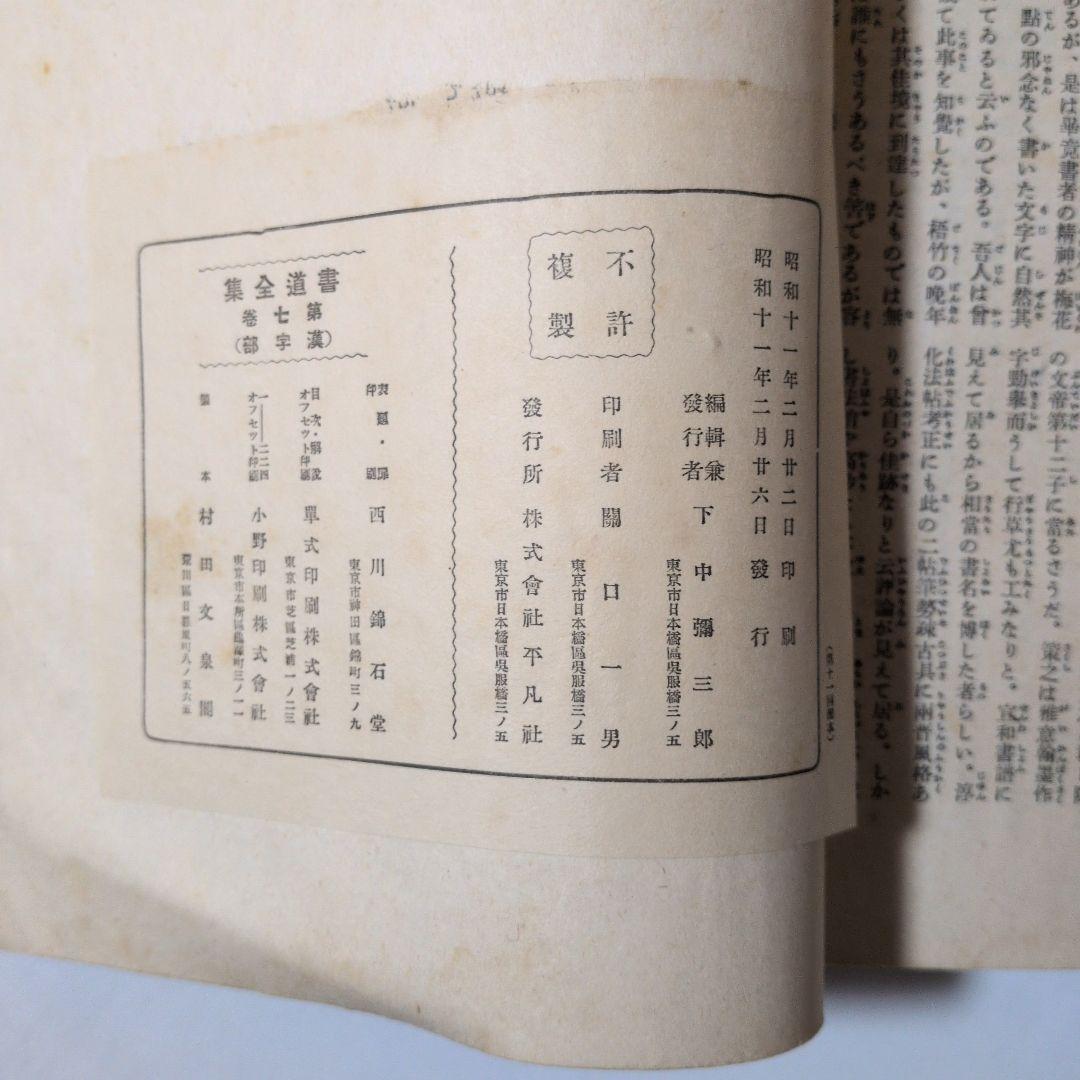 昭和十一年二月廿二日印刷
昭和十一年二月廿六日發行
不許
複製
編輯兼
發行者 下中彌三郎
東京市日本橋區呉服橋三ノ五
印刷者 關口一男
東京市日本橋區呉服橋三ノ五
發行所 株式會社平凡社
東京市日本橋區呉服橋三ノ五
書道全集
第七卷
(漢字部)
西川錦石堂
東京市神田區錦町三ノ九
目次・解説
オフセツト印刷
單式印刷株式會社
東京市芝區芝浦一ノ二三
一——二二四
オフセツト印刷
小野印刷株式會社
製本
村田文泉閣
あるが、是は畢竟書者の精神が梅花
點の邪念なく書いた文字に自然其
てゐると云ふのである。吾人は曾
て此事を知覺したが、梧竹の晩年
くは其佳境に到達したものでは無
に誰にもさうあるべき筈であるが容
の文帝第十二子に當るさうだ。
字勁擧而うして行草尤も工みなりと。宣和書譜に
見えて居るから相當の書名を博した者らしい。淳
化法帖考正にも此の二帖筆勢疎古具に兩晋風格あ
り。是自ら佳跡なりと云ふ評論が見えて居る。しか